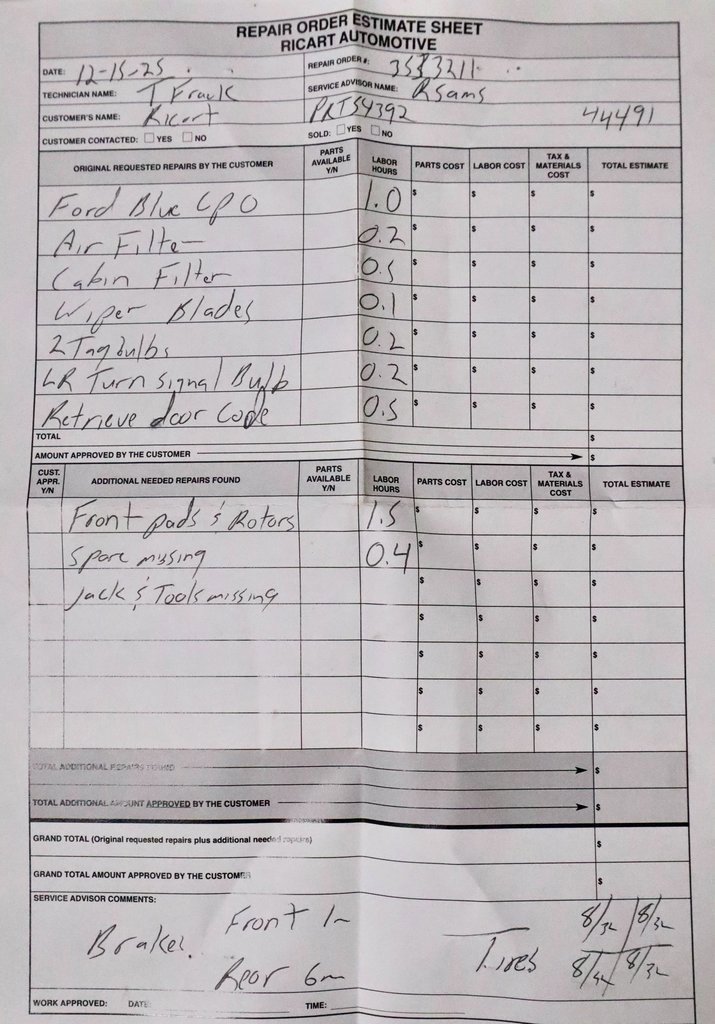 REPAIR ORDER ESTIMATE SHEET
RICART AUTOMOTIVE
DATE: 12-15-25 REPAIR ORDER #: 3533211
TECHNICIAN NAME: T Frauk SERVICE ADVISOR NAME: RSams
CUSTOMER'S NAME: Ricart PRTS4392 44491
CUSTOMER CONTACTED: YES NO SOLD: YES NO
ORIGINAL REQUESTED REPAIRS BY THE CUSTOMER PARTS AVAILABLE Y/N LABOR HOURS PARTS COST LABOR COST TAX & MATERIALS COST TOTAL ESTIMATE
Ford Blue CPO 1.0 $ $ $ $
Air Filter 0.2 $ $ $ $
Cabin Filter 0.5 $ $ $ $
Wiper Blades 0.1 $ $ $ $
2 Tag bulbs 0.2 $ $ $ $
LR Turn signal Bulb 0.2 $ $ $ $
Retrieve door Code 0.5 $ $ $ $
TOTAL $
AMOUNT APPROVED BY THE CUSTOMER $
CUST. APPR. Y/N ADDITIONAL NEEDED REPAIRS FOUND PARTS AVAILABLE Y/N LABOR HOURS PARTS COST LABOR COST TAX & MATERIALS COST TOTAL ESTIMATE
Front pads & Rotors 1.5 $ $ $ $
Spare missing 0.4 $ $ $ $
Jack & Tools missing $ $ $ $
$ $ $ $
$ $ $ $
$ $ $ $
$ $ $ $
TOTAL ADDITIONAL REPAIRS FOUND $
TOTAL ADDITIONAL AMOUNT APPROVED BY THE CUSTOMER $
GRAND TOTAL (Original requested repairs plus additional needed repairs) $
GRAND TOTAL AMOUNT APPROVED BY THE CUSTOMER $
SERVICE ADVISOR COMMENTS:
Brakes Front 1m
Rear 6m
Tires 8/32 8/32
8/32 8/32
WORK APPROVED: DATE: TIME: